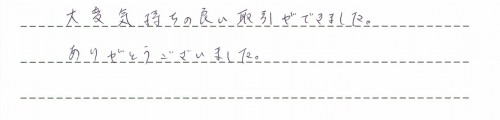 大変気持ちの良い取引ができました。
ありがとうございました。